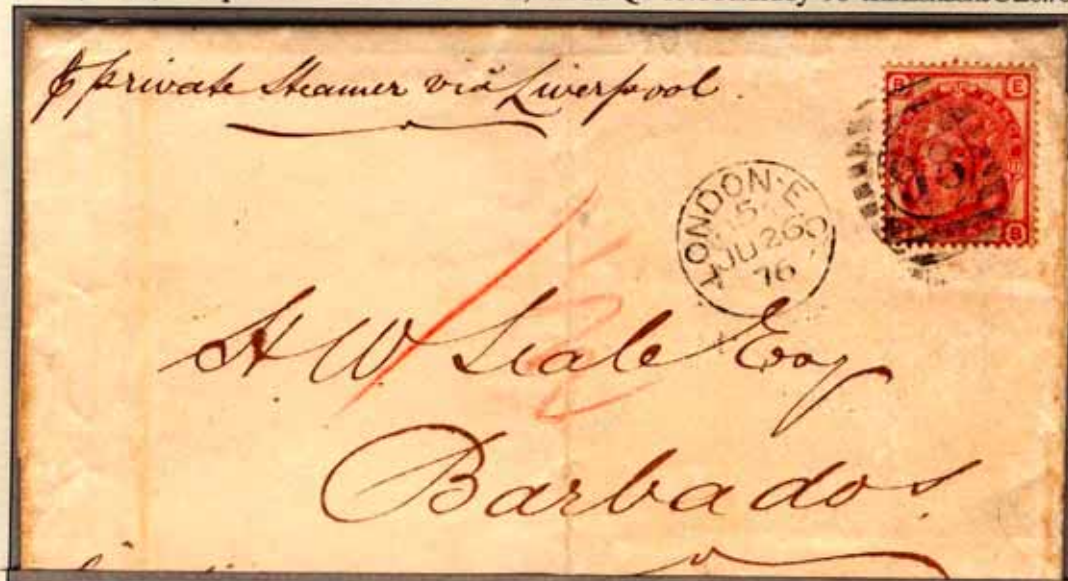 private Steamer via Liverpool.
LONDON·E C
5
JU 26
76
B E
E B
H W Seale Esq
Barbados.